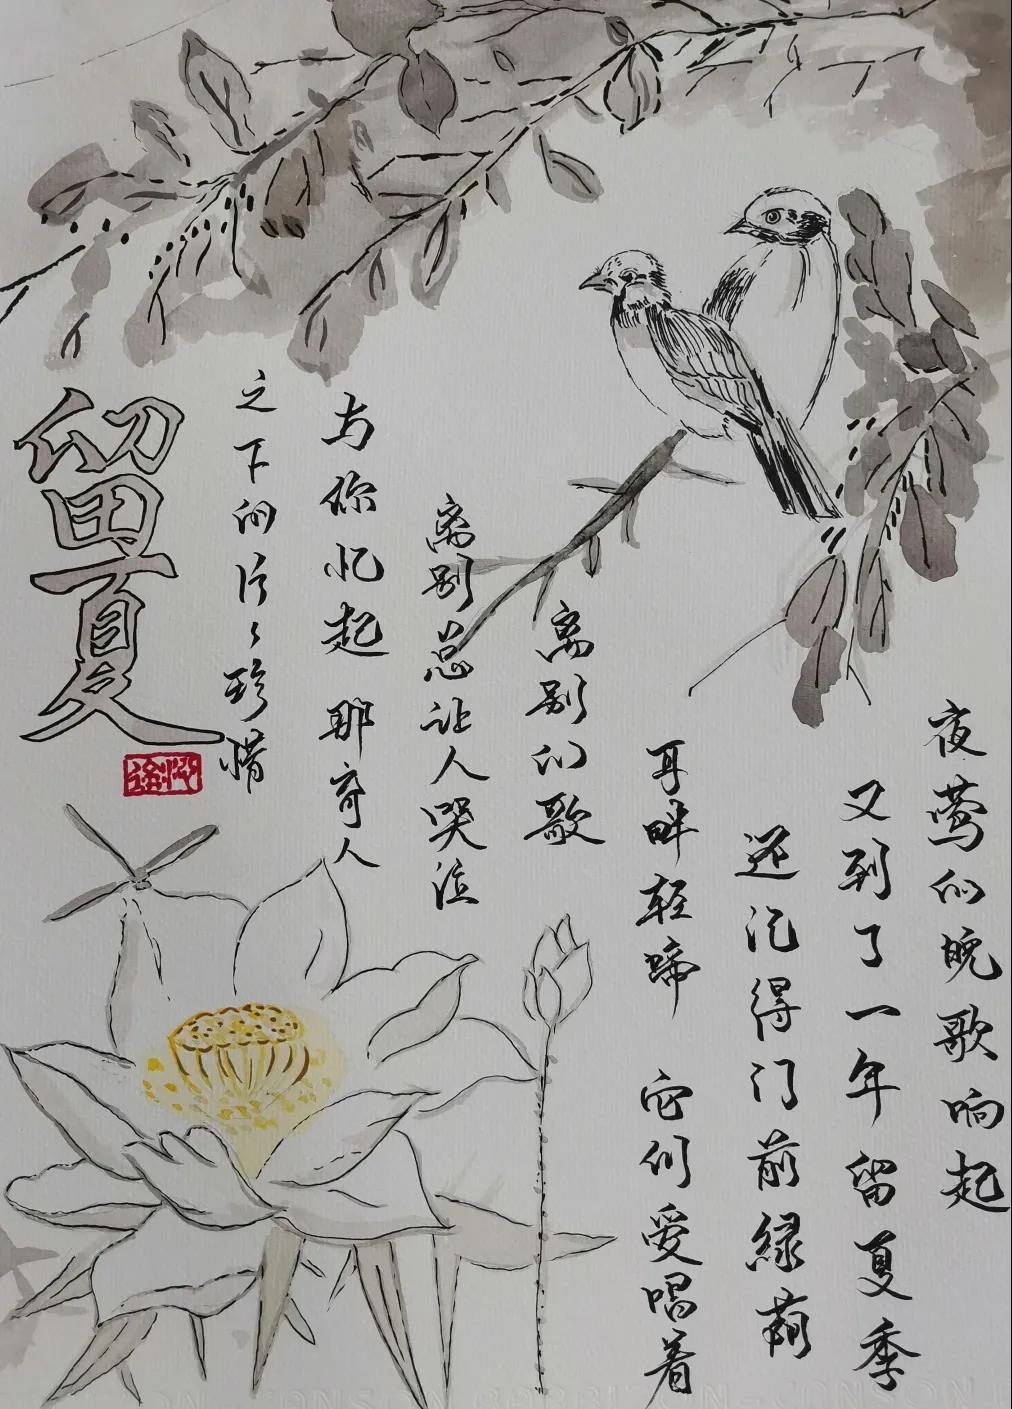 夜莺的晚歌响起
又到了一年留夏季
还记得门前绿荫
耳畔轻啼 它们爱唱着
离别的歌
离别总让人哭泣
与你忆起 那奇人
之下的片片珍惜
留夏